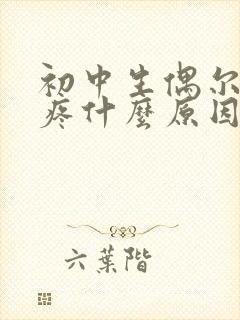 初中生偶尔
疼什麼原因
六葉階